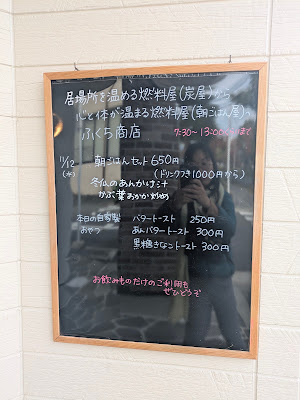 居場所を温める燃料屋(炭屋)から
心と体が温まる燃料屋(朝ごはん屋)へ
ふくら商店
7:30~13:00まで
11/12
(水)
朝ごはんセット 650円
(ドリンクつき1000円から)
冬仙のあんかけ汁
かぶ葉おかか炒め
本日の自家製
おやつ
バタートースト 250円
あんバタートースト 300円
黒糖きなこトースト 300円
お飲みものだけのご利用も
ぜひどうぞ